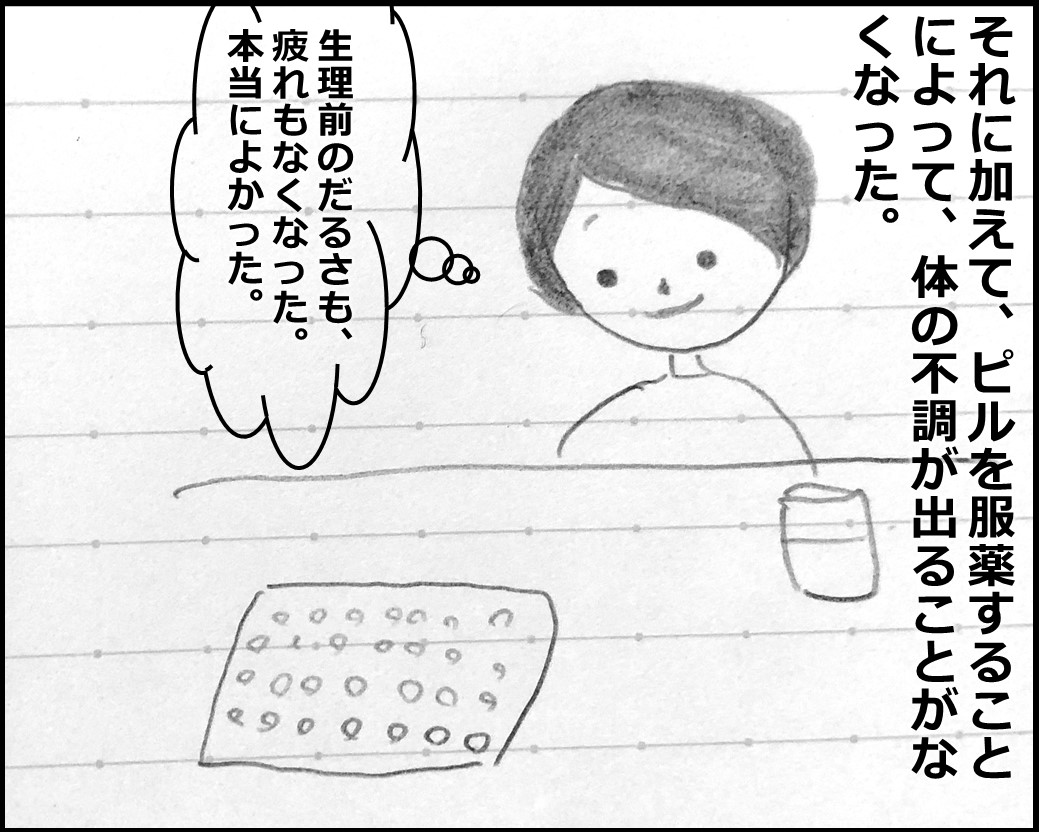 それに加えて、ピルを服薬すること
によって、体の不調が出ることがな
くなった。
生理前のだるさも、
疲れもなくなった。
本当によかった。